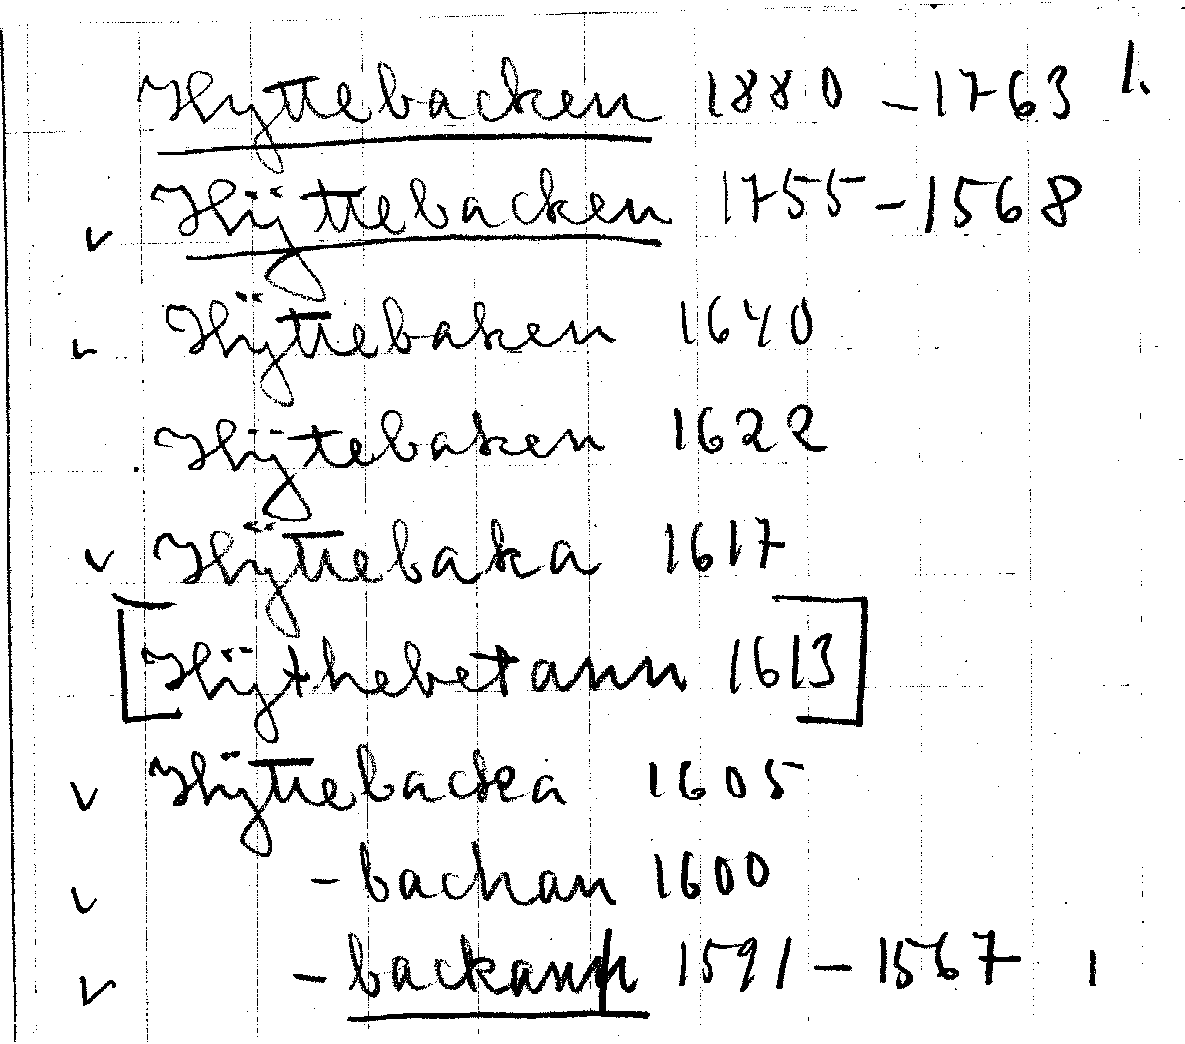 Hyttebacken 1880 - 1763 1.
v Hÿttebacken 1755 - 1568
v Hÿttebaken 1640
Hÿtebaken 1622
v Hÿttebaka 1617
[Hÿthebetann 1613]
v Hÿttebacka 1605
v - bachan 1600
v - backann 1591 - 1567 1